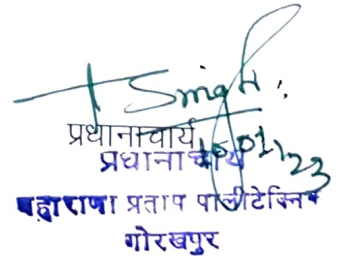 Singh
प्रधानाचार्य
प्रधानाचार्य
महाराणा प्रताप पालीटेक्निक
गोरखपुर